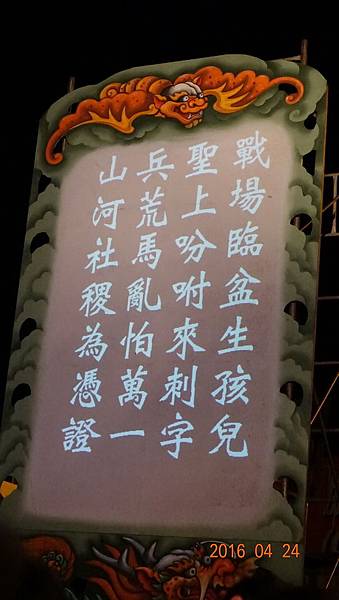 戰場臨盆生孩兒
聖上吩咐來刺字
兵荒馬亂怕萬一
山河社稷為憑證
2016 04 24